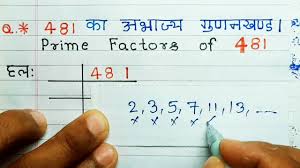 Q.* 481 का अभाज्य गुणनखण्ड।
Prime Factors of 481
हल:
481
2, 3, 5, 7, 11, 13, ---
× × × ×